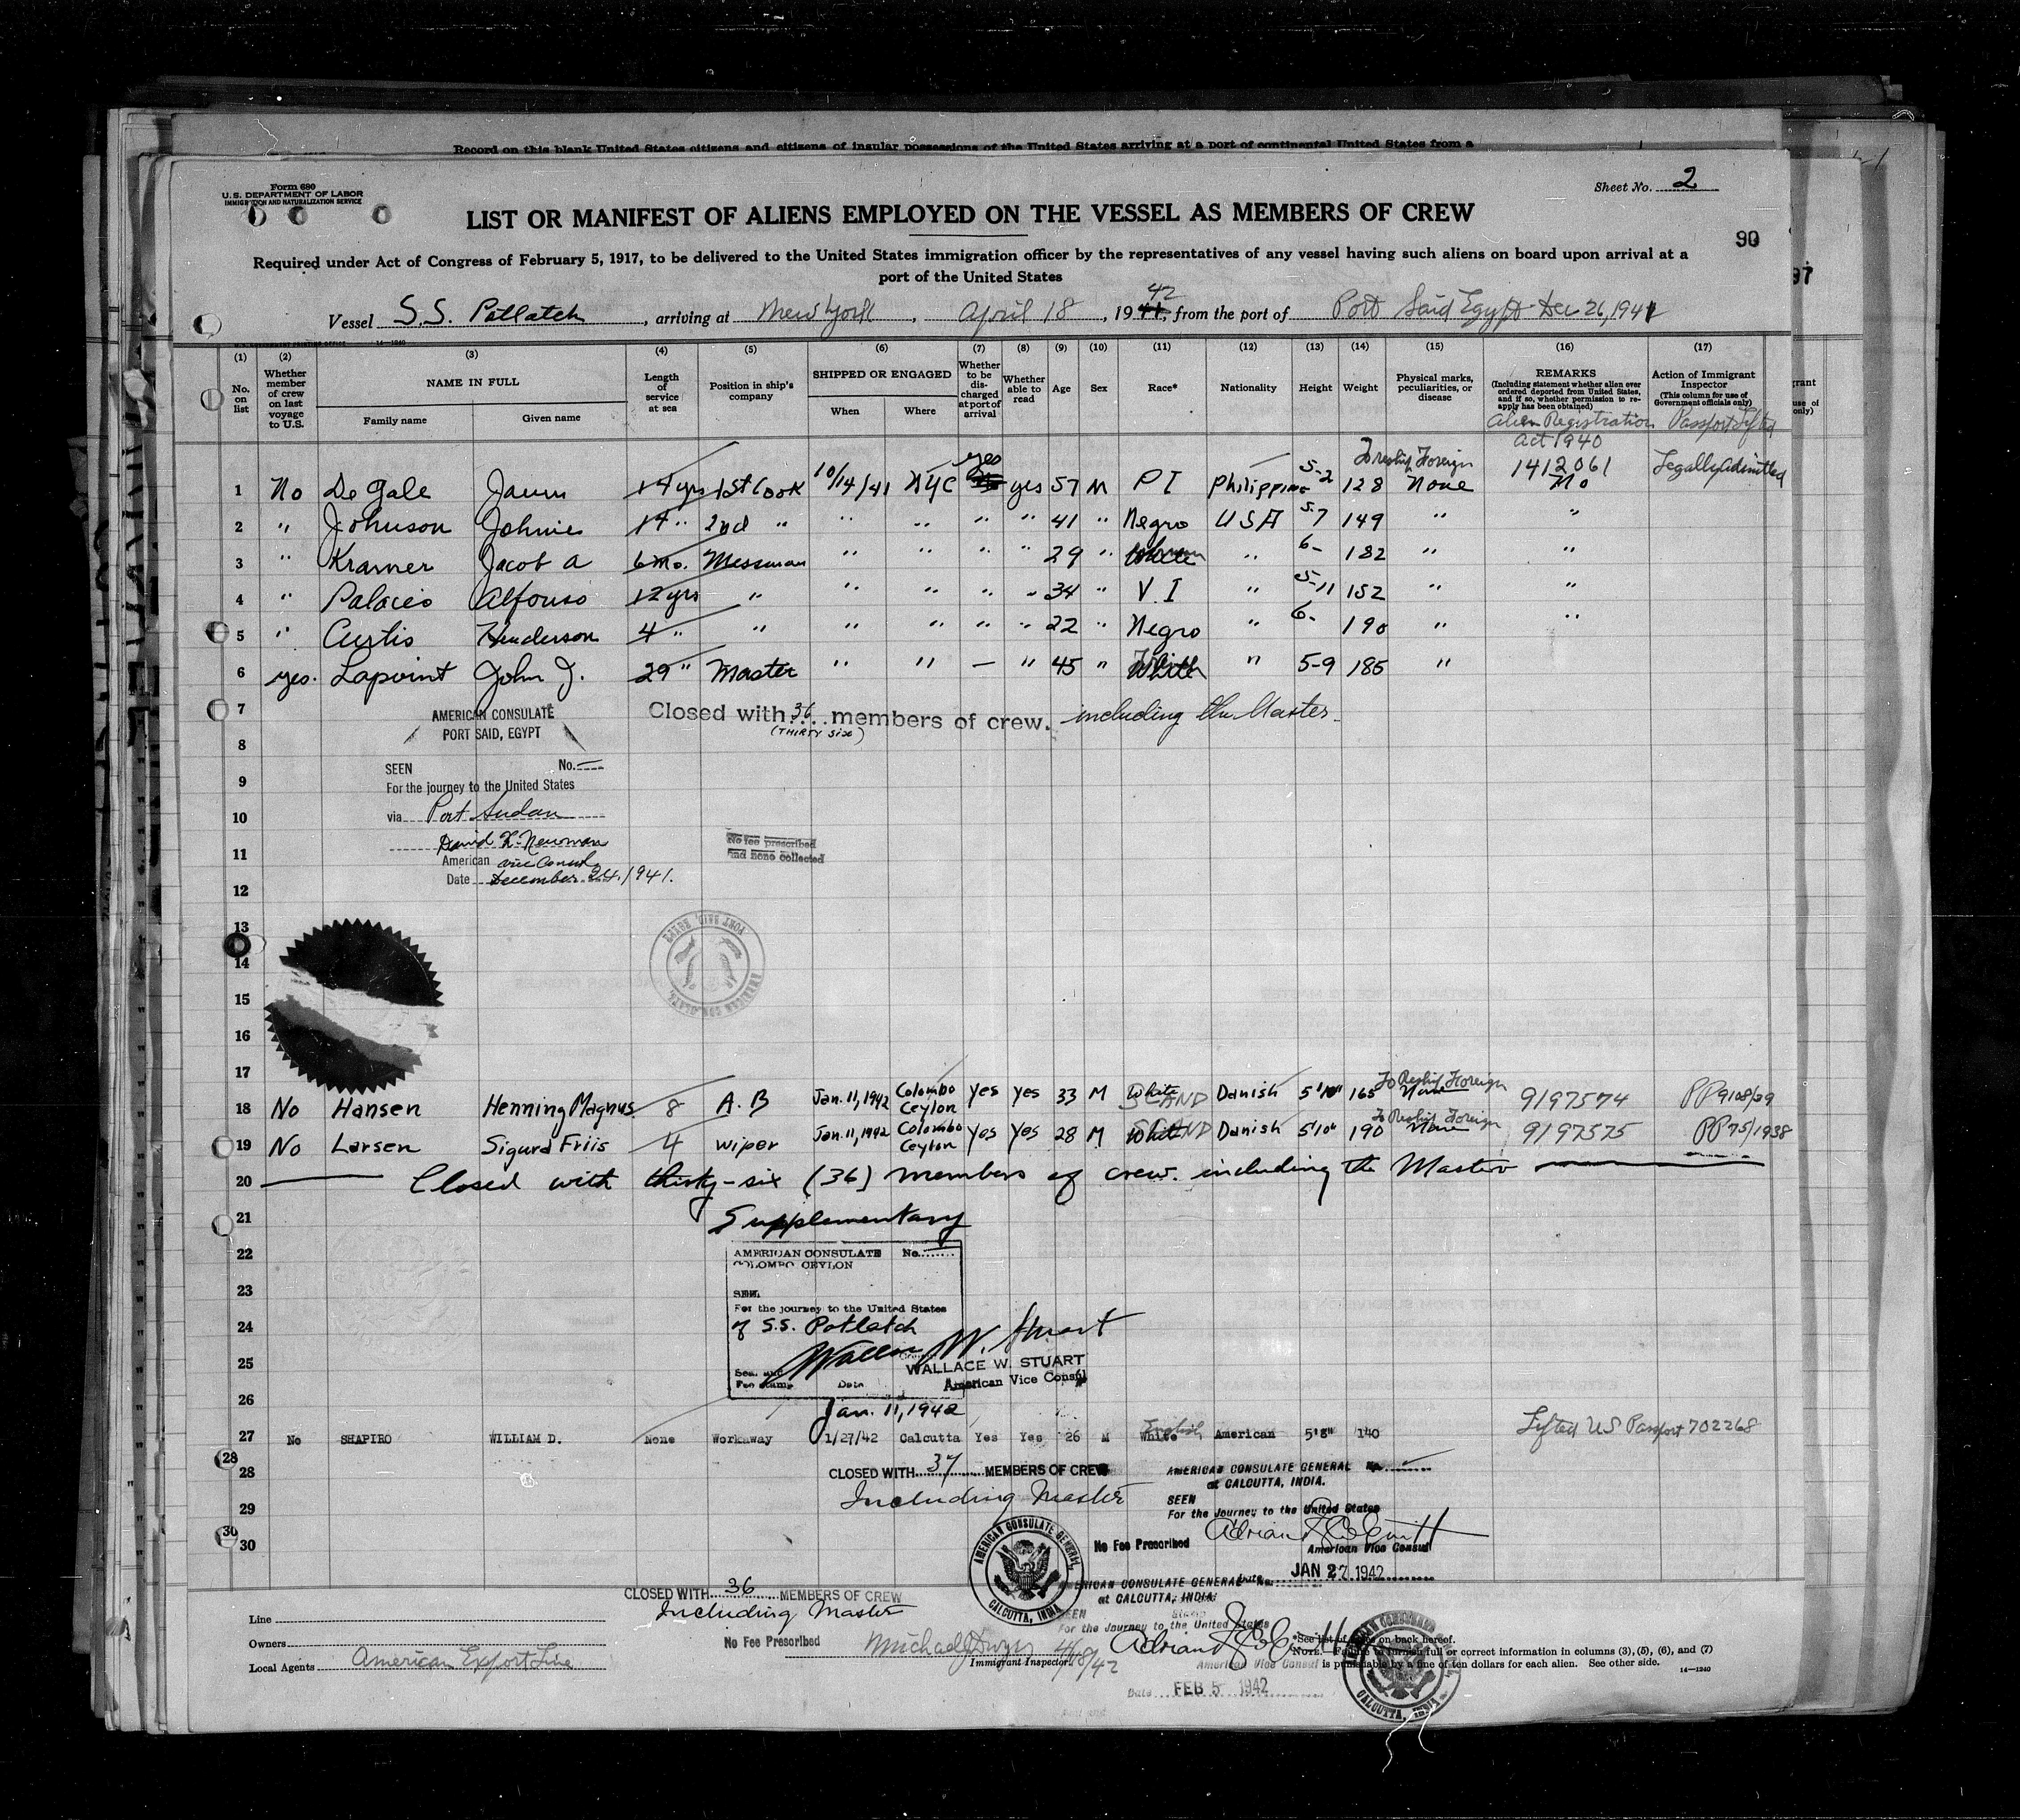 Record on this blank United States citizens and citizens of insular possessions of the United States arriving at a port of continental United States from a
Form 680
U.S. DEPARTMENT OF LABOR
IMMIGRATION AND NATURALIZATION SERVICE
Sheet No. 2
LIST OR MANIFEST OF ALIENS EMPLOYED ON THE VESSEL AS MEMBERS OF CREW
90
97
Required under Act of Congress of February 5, 1917, to be delivered to the United States immigration officer by the representatives of any vessel having such aliens on board upon arrival at a
port of the United States
Vessel S.S. Potlatch, arriving at New York, April 18, 1942, from the port of Port Said Egypt Dec 26, 1941
(1) (2) (3) (4) (5) (6) (7) (8) (9) (10) (11) (12) (13) (14) (15) (16) (17)
No. on list
Whether member of crew on last voyage to U.S.
NAME IN FULL
Family name
Given name
Length of service at sea
Position in ship's company
SHIPPED OR ENGAGED
When
Where
Whether to be discharged at port of arrival
Whether able to read
Age
Sex
Race*
Nationality
Height
Weight
Physical marks, peculiarities, or disease
REMARKS
(Including statement whether alien ever ordered deported from United States, and if so, whether permission to reapply has been obtained)
Action of Immigrant Inspector
(This column for use of Government officials only)
Alien Registration Act 1940
Passport Lifted
To reship Foreign
1 No De Gale 14 yrs 1st Cook 10/14/41 NYC yes yes 57 M P I Philippine 5-2 128 None 1412061 No Legally Admitted
2 " Johnson Johnie 14 " 2nd " " " " " 41 " Negro USA 5-7 149 " "
3 " Kramer Jacob A 6 mo. Messman " " " " 29 " " 6- 182 " "
4 " Palacio Alfonso 12 yrs " " " " " 34 " V.I " 5-11 152 " "
5 " Curtis Henderson 4 " " " " " " 22 " Negro " 6- 190 " "
6 yes. Lapoint John J. 29 " Master " " — " 45 " White " 5-9 185 "
7 Closed with 36 members of crew. including the Master
(THIRTY SIX)
AMERICAN CONSULATE
PORT SAID, EGYPT
8
SEEN No. —
9 For the journey to the United States
10 via Port Sudan
David H. Newman
11 American vice Consul
Date December 24, 1941.
No fee prescribed
and none collected
12
13
AMERICAN CONSULATE PORT SAID, EGYPT
14
15
16
17
18 No Hansen Henning Magnus 8 A.B Jan. 11, 1942 Colombo Ceylon Yes Yes 33 M White SCAND Danish 5'10" 165 None To Reship Foreign 9197574 PP 9108/39
19 No Larsen Sigurd Friis 4 wiper Jan. 11, 1942 Colombo Ceylon Yes Yes 28 M White SCAND Danish 5'10" 190 None To Reship Foreign 9197575 PP 75/1938
20 Closed with thirty-six (36) members of crew. including the Master
21 Supplementary
22 AMERICAN CONSULATE No.
COLOMBO CEYLON
23 SEEN
For the journey to the United States
24 of S.S. Potlatch
Wallace W. Stuart
25 WALLACE W. STUART
American Vice Consul
Seal and
Fee stamp
Date
26 Jan. 11, 1942
27 No SHAPIRO WILLIAM D. None Workaway 1/27/42 Calcutta Yes Yes 26 M White English American 5'8" 140 Lifted US Passport 702268
28 CLOSED WITH 37 MEMBERS OF CREW
Including Master
AMERICAN CONSULATE GENERAL No.
at CALCUTTA, INDIA.
29 SEEN
For the Journey to the United States
30 No Fee Prescribed
American Vice Consul
JAN 27 1942
AMERICAN CONSULATE GENERAL CALCUTTA, INDIA
CLOSED WITH 36 MEMBERS OF CREW
Including Master
No Fee Prescribed
AMERICAN CONSULATE GENERAL No.
at CALCUTTA, INDIA.
SEEN
For the Journey to the United States
American Vice Consul
Date FEB 5 1942
Line
Owners
Local Agents American Export Line
4/18/42
Immigrant Inspector.
*See list of races on back hereof.
NOTE.—Failure to furnish full or correct information in columns (3), (5), (6), and (7)
is punishable by a fine of ten dollars for each alien. See other side.
14—1240
AMERICAN CONSULATE GENERAL CALCUTTA, INDIA